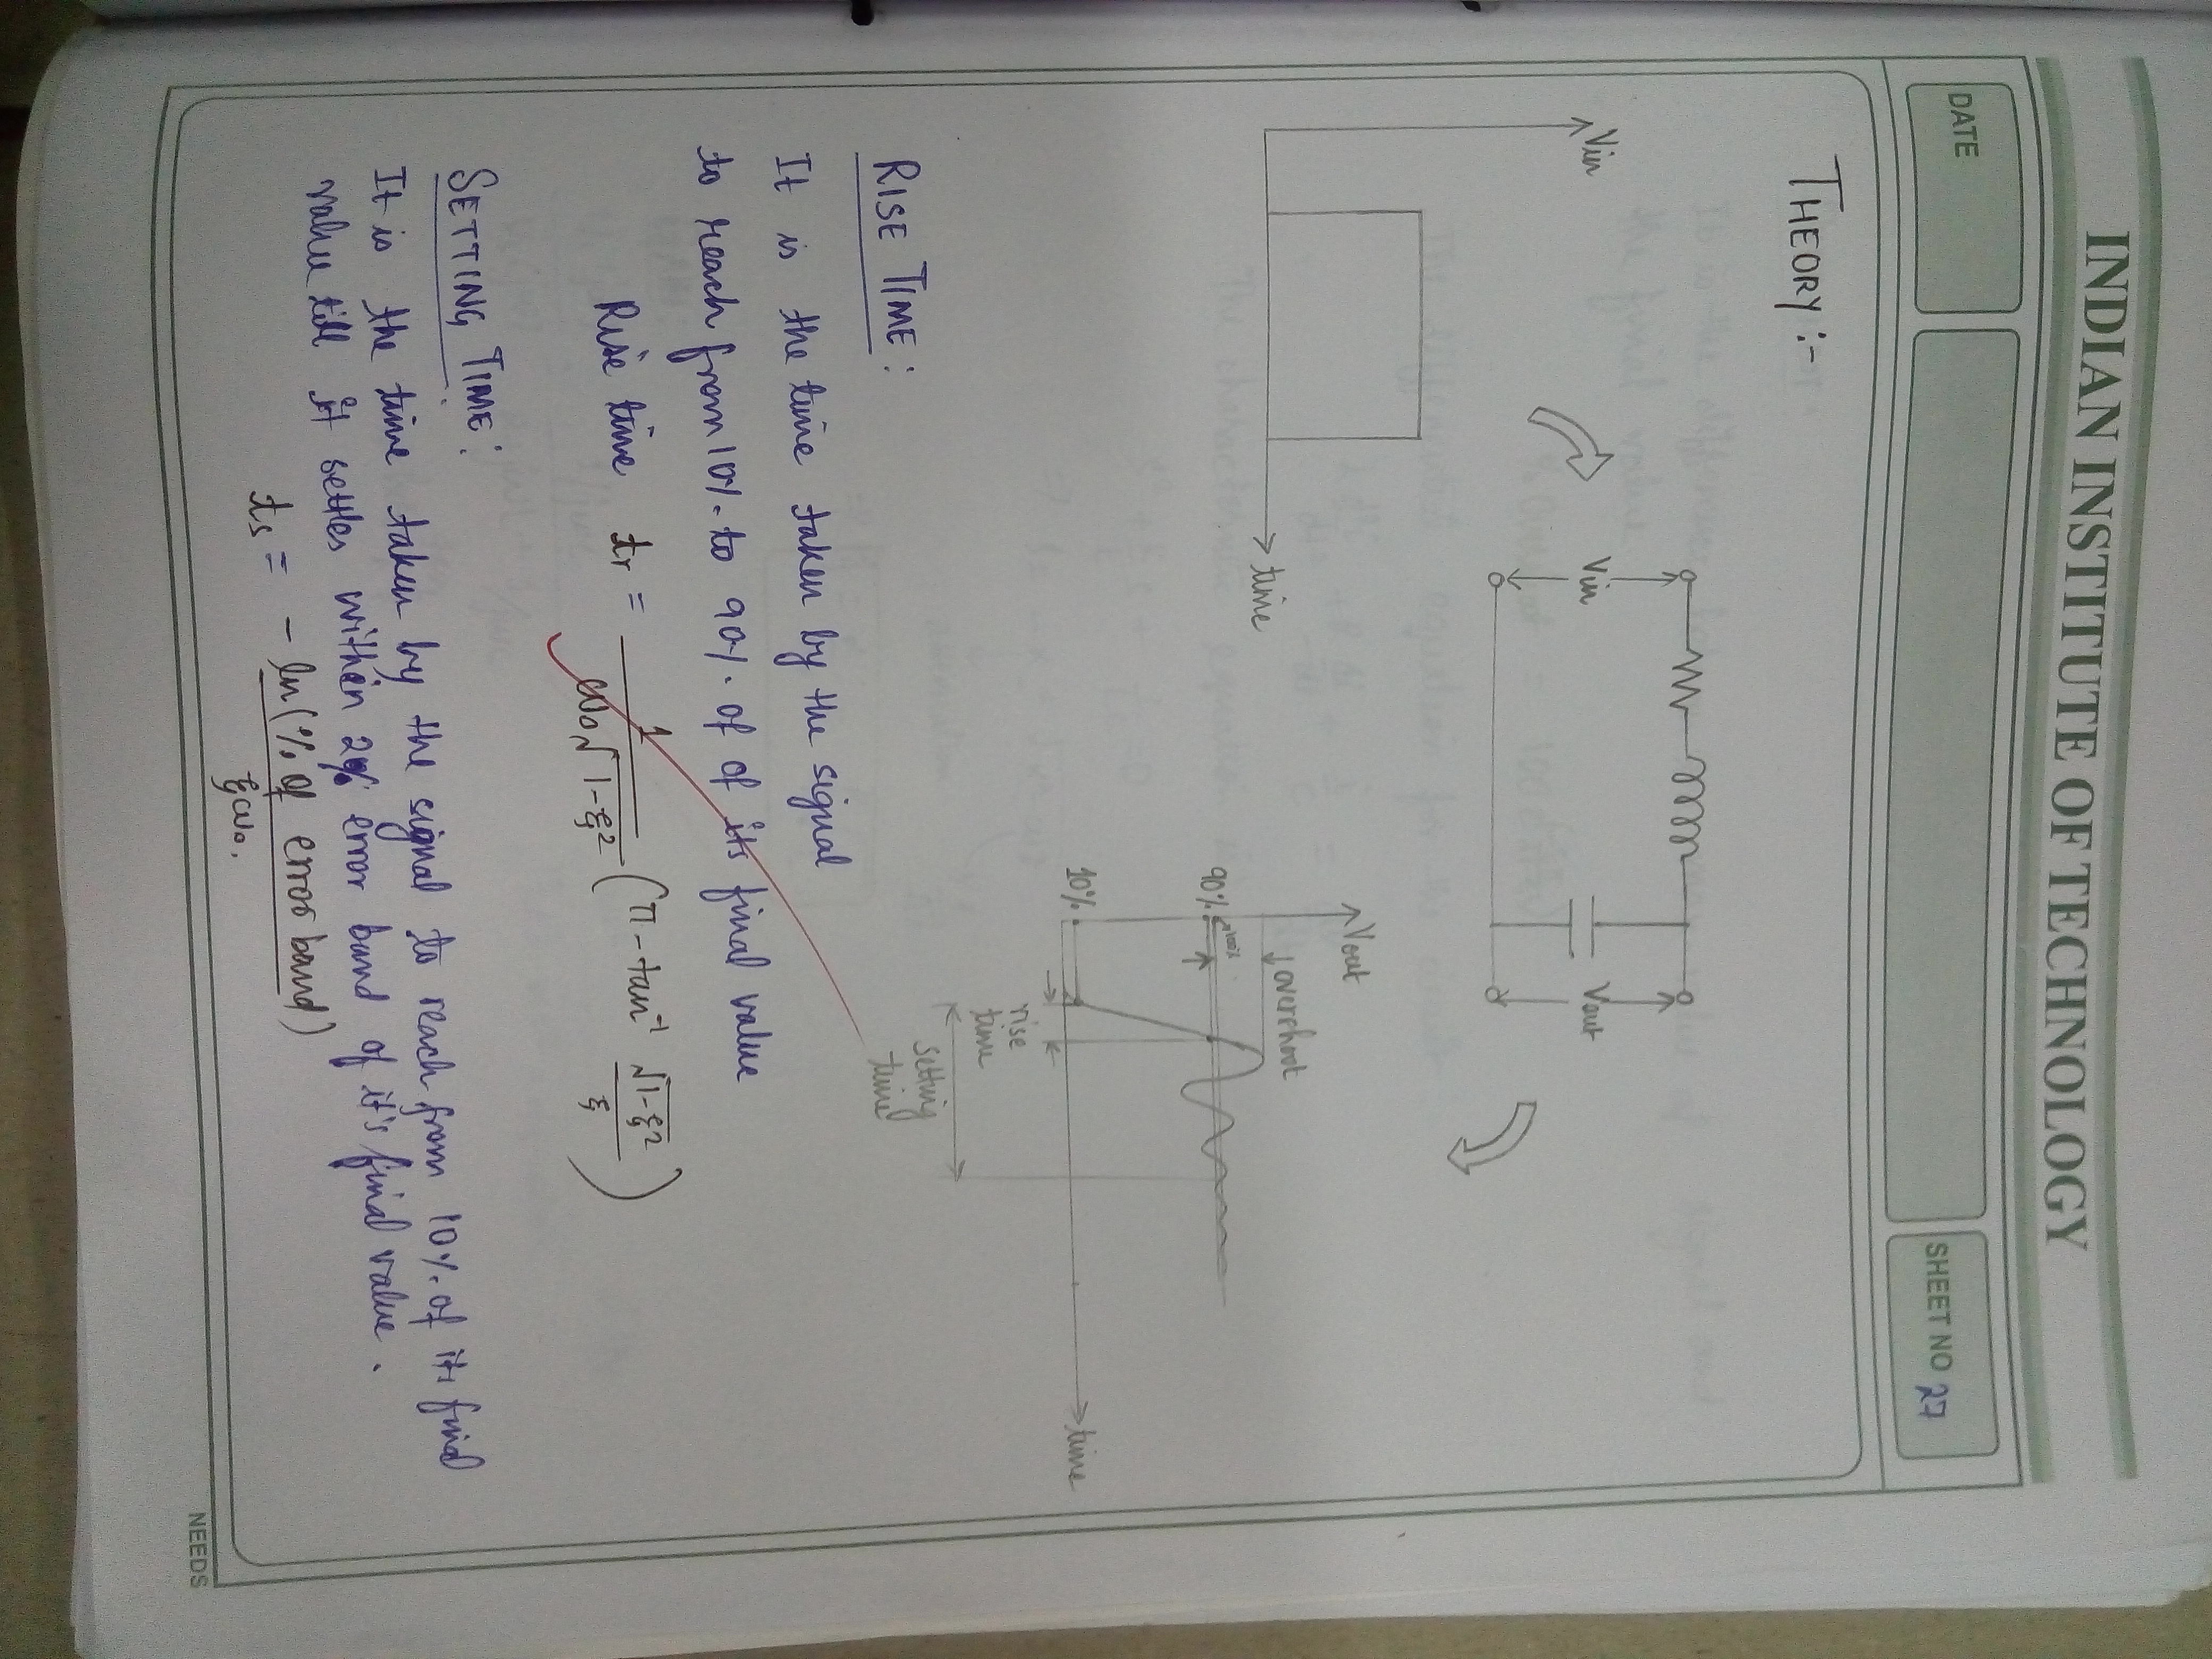 INDIAN INSTITUTE OF TECHNOLOGY
DATE
SHEET NO 27
THEORY :-
Vin
time
Vin
Vout
Vout
overshoot
100%
90%
10%
time
rise
time
Setting
time
RISE TIME :
It is the time taken by the signal
to reach from 10%. to 90%. of of its final value
Rise time tr = 1/(ω₀√(1-ξ²)) (π - tan⁻¹ √(1-ξ²)/ξ)
SETTING TIME :
It is the time taken by the signal to reach from 10%. of its final
value till it settles within 2% error band of it's final value.
ts = - ln(% of error band)/ξω₀.
NEEDS